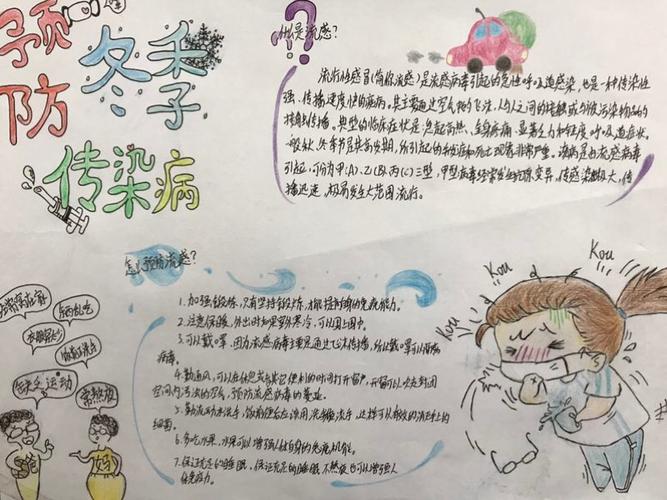 预防冬季
传染病
什么是流感?
流行性感冒(简称流感)是流感病毒引起的急性呼吸道感染,也是一种传染性
强、传播速度快的疾病。其主要通过空气中的飞沫、人与人之间的接触或与被污染物品的
接触传播。典型的临床症状是:急起高热、全身疼痛、显著乏力和轻度呼吸道症状。
一般秋、冬季节是其高发期,所引起的并发症和死亡现象非常严重。该病是由流感病毒
引起,可分为甲(A)、乙(B)、丙(C)三型,甲型病毒经常发生抗原变异,传染性大,传
播迅速,极易发生大范围流行。
怎么预防流感?
1.加强锻炼,只有坚持锻炼,才能提高身体的免疫能力。
2.注意保暖,外出时如果寒冷,可以围上围巾。
3.可以戴口罩,因为流感病毒主要是通过飞沫传播,所以戴口罩可以预防
病毒。
4.勤通风,可以在休息或有其它便利的时间打开窗户,开窗可以吹走封闭
空间内污浊的空气,预防流感病毒的蔓延。
5.勤流动水洗手,饭前便后应该用洗手液洗手,这样可以有效的清洁手上的
细菌。
6.多吃水果,水果可以增强人体自身的免疫机能。
7.保证充足的睡眠,保证充足的睡眠不熬夜也可以增强人
体免疫力。
Kou
Kou
Kou
运动
爸
妈